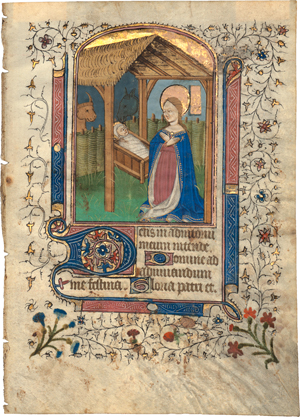 Deus in adiutoriū
meum intende
Domine ad
adiuuandum
me festina. Gloria patri et.